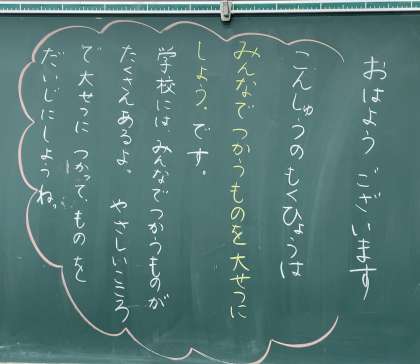 おはようございます
こんしゅうのもくひょうは
みんなでつかうものを大せつに
しよう。です。
学校には、みんなでつかうものが
たくさんあるよ。 やさしいこころ
で大せつにつかって、ものを
だいじにしようね。